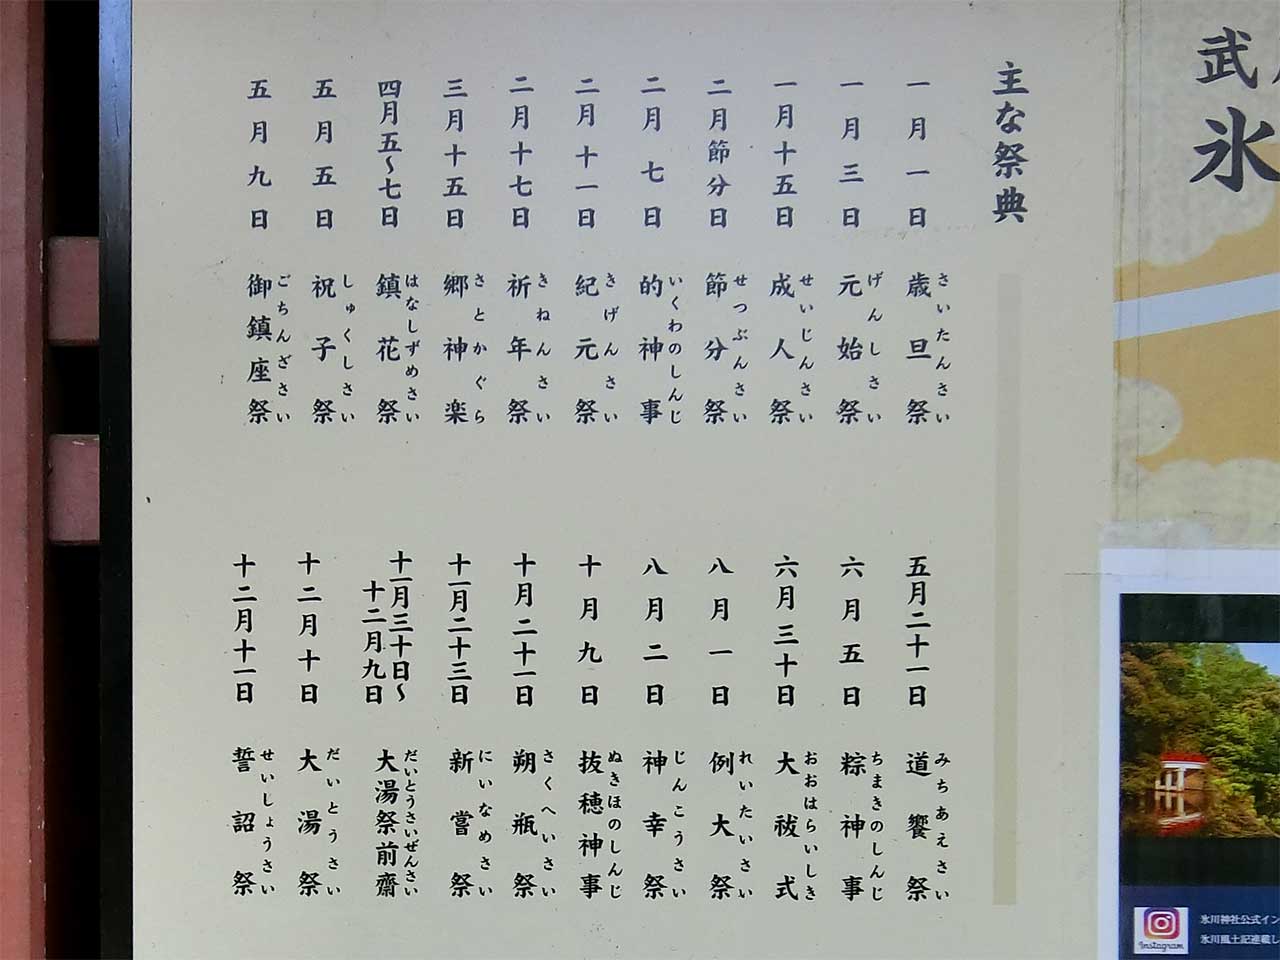 武
氷
主な祭典
一月一日 歳旦祭 さいたんさい
一月三日 元始祭 げんしさい
一月十五日 成人祭 せいじんさい
二月節分日 節分祭 せつぶんさい
二月七日 的神事 いくわのしんじ
二月十一日 紀元祭 きげんさい
二月十七日 祈年祭 きねんさい
三月十五日 郷神楽 さとかぐら
四月五〜七日 鎮花祭 はなしずめさい
五月五日 祝子祭 しゅくしさい
五月九日 御鎮座祭 ごちんざさい
五月二十一日 道饗祭 みちあえさい
六月五日 粽神事 ちまきのしんじ
六月三十日 大祓式 おおはらいしき
八月一日 例大祭 れいたいさい
八月二日 神幸祭 じんこうさい
十月九日 抜穂神事 ぬきほのしんじ
十月二十一日 朔瓶祭 さくへいさい
十一月二十三日 新嘗祭 にいなめさい
十一月三十日〜
十二月九日 大湯祭前齋 だいとうさいぜんさい
十二月十日 大湯祭 だいとうさい
十二月十一日 誓詔祭 せいしょうさい
Instagram
氷川神社公式イン
氷川風土記連載し